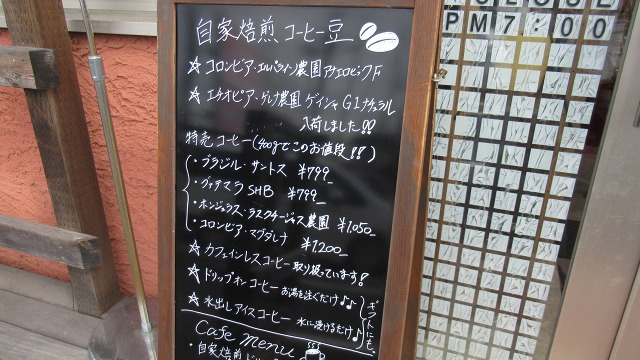 CLOSE
PM 7:00
自家焙煎コーヒー豆
☆コロンビア・エルパライソ農園 アナエロビック F
☆エチオピア・ゲレナ農園 ゲイシャ G1 ナチュラル
入荷しました!!
特売コーヒー(400gでこのお値段!!)
・ブラジル・サントス ¥799_
・グァテマラ SHB ¥799_
・ホンジュラス・ラスクチージャス農園 ¥1,050_
・コロンビア・マグダレナ ¥1,200_
☆カフェインレスコーヒー 取り扱っています!
☆ドリップオンコーヒー お湯を注ぐだけ♪♪
☆水出しアイスコーヒー 水に浸けるだけ♪
ギフトにも。
Cafe menu
・自家焙煎